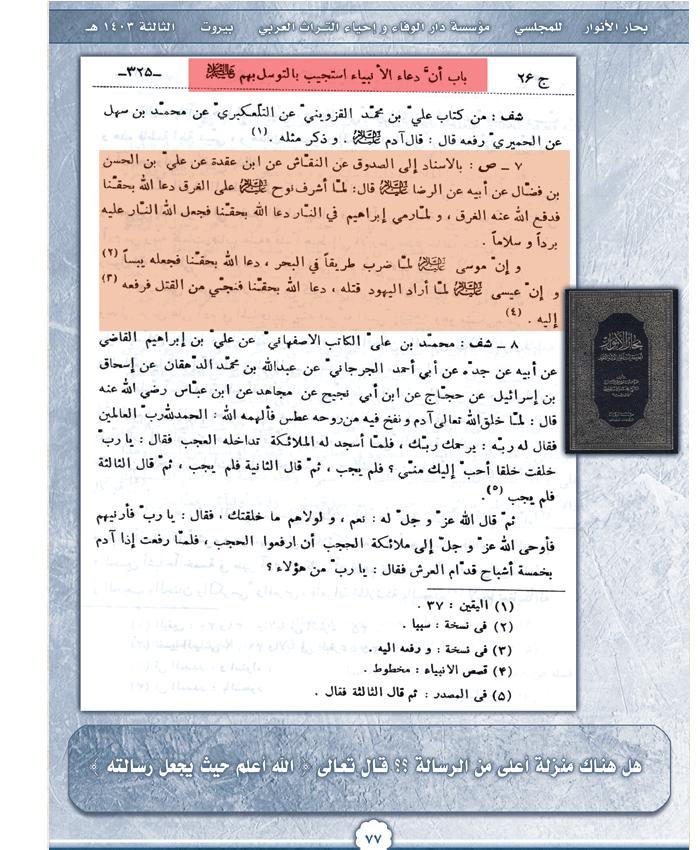 بحار الأنوار للمجلسي مؤسسة دار الوفاء و إحياء التراث العربي بيروت الثالثة ١٤٠٣ هـ
ج ٢٦ باب أنَّ دعاء الأنبياء استجيب بالتوسل بهم عليهم السلام ـ٣٢٥ـ
شف : من كتاب عليّ بن محمّد القزوينيّ عن التلّعكبريّ عن محمّد بن سهل
عن الحميريّ رفعه قال : قال آدم عليه السلام . و ذكر مثله . (١)
٧ ـ ص : بالاسناد إلى الصدوق عن النقّاش عن ابن عقدة عن عليّ بن الحسن
بن فضّال عن أبيه عن الرضا عليه السلام قال: لمّا أشرف نوح عليه السلام على الغرق دعا الله بحقّنا
فدفع الله عنه الغرق ، و لمّا رمي إبراهيم في النار دعا الله بحقّنا فجعل الله النار عليه
برداً و سلاماً .
و إنّ موسى عليه السلام لمّا ضرب طريقاً في البحر ، دعا الله بحقّنا فجعله يبساً (٢)
و إنّ عيسى عليه السلام لمّا أراد اليهود قتله ، دعا الله بحقّنا فنجّي من القتل فرفعه (٣)
إليه . (٤)
٨ ـ شف : محمّد بن عليّ الكاتب الاصفهانيّ عن عليّ بن إبراهيم القاضي
عن أبيه عن جدّه عن أبي أحمد الجرجانيّ عن عبدالله بن محمّد الدهقان عن إسحاق
بن إسرائيل عن حجّاج عن ابن أبي نجيح عن مجاهد عن ابن عبّاس رضي الله عنه
قال : لمّا خلق الله تعالى آدم و نفخ فيه من روحه عطس فألهمه الله : الحمدلله ربّ العالمين
فقال له ربّه : يرحمك ربّك ، فلمّا أسجد له الملائكة تداخله العجب فقال : يا ربّ
خلقت خلقا أحبّ إليك منّي ؟ فلم يجب ، ثمّ قال الثانية فلم يجب ، ثمّ قال الثالثة
فلم يجب (٥) .
ثمّ قال الله عزّ و جلّ له : نعم ، و لولاهم ما خلقتك ، فقال : يا ربّ فأرنيهم
فأوحى الله عزّ و جلّ إلى ملائكة الحجب أن ارفعوا الحجب ، فلمّا رفعت إذا آدم
بخمسة أشباح قدّام العرش فقال : يا ربّ من هؤلاء ؟
(١) اليقين : ٣٧ .
(٢) فى نسخة : سببا .
(٣) فى نسخة : و رفعه اليه .
(٤) قصص الانبياء : مخطوط .
(٥) فى المصدر : ثم قال الثالثة فقال .
بحار الأنوار
هل هناك منزلة أعلى من الرسالة ؟؟ قال تعالى ﴿ الله أعلم حيث يجعل رسالته ﴾
٧٧